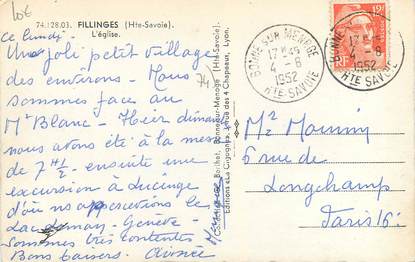 10€
74.128.03. FILLINGES (Hte-Savoie).
L'église.
ce lundi -
Une joli petit village
des environs - Nous
sommes face au
Mt Blanc - Hier dimanche
nous avons été à la messe
de 7 H ½ - ensuite une
excursion à Lucinge
d'où nous apercevions le
Lac Léman - Genève -
Sommes très contentes
Bons baisers.
74
BONNE SUR MENOGE
17H45
4-8
1952
HTE SAVOIE
17H45
4-8
1952
HTE SAVOIE
12F
RF
Bonne-sur-Menoge (Hte-Savoie)
Editions «La Cigogne», rue des 4 Chapeaux, Lyon.
6 rue de
Longchamp
Paris 16e